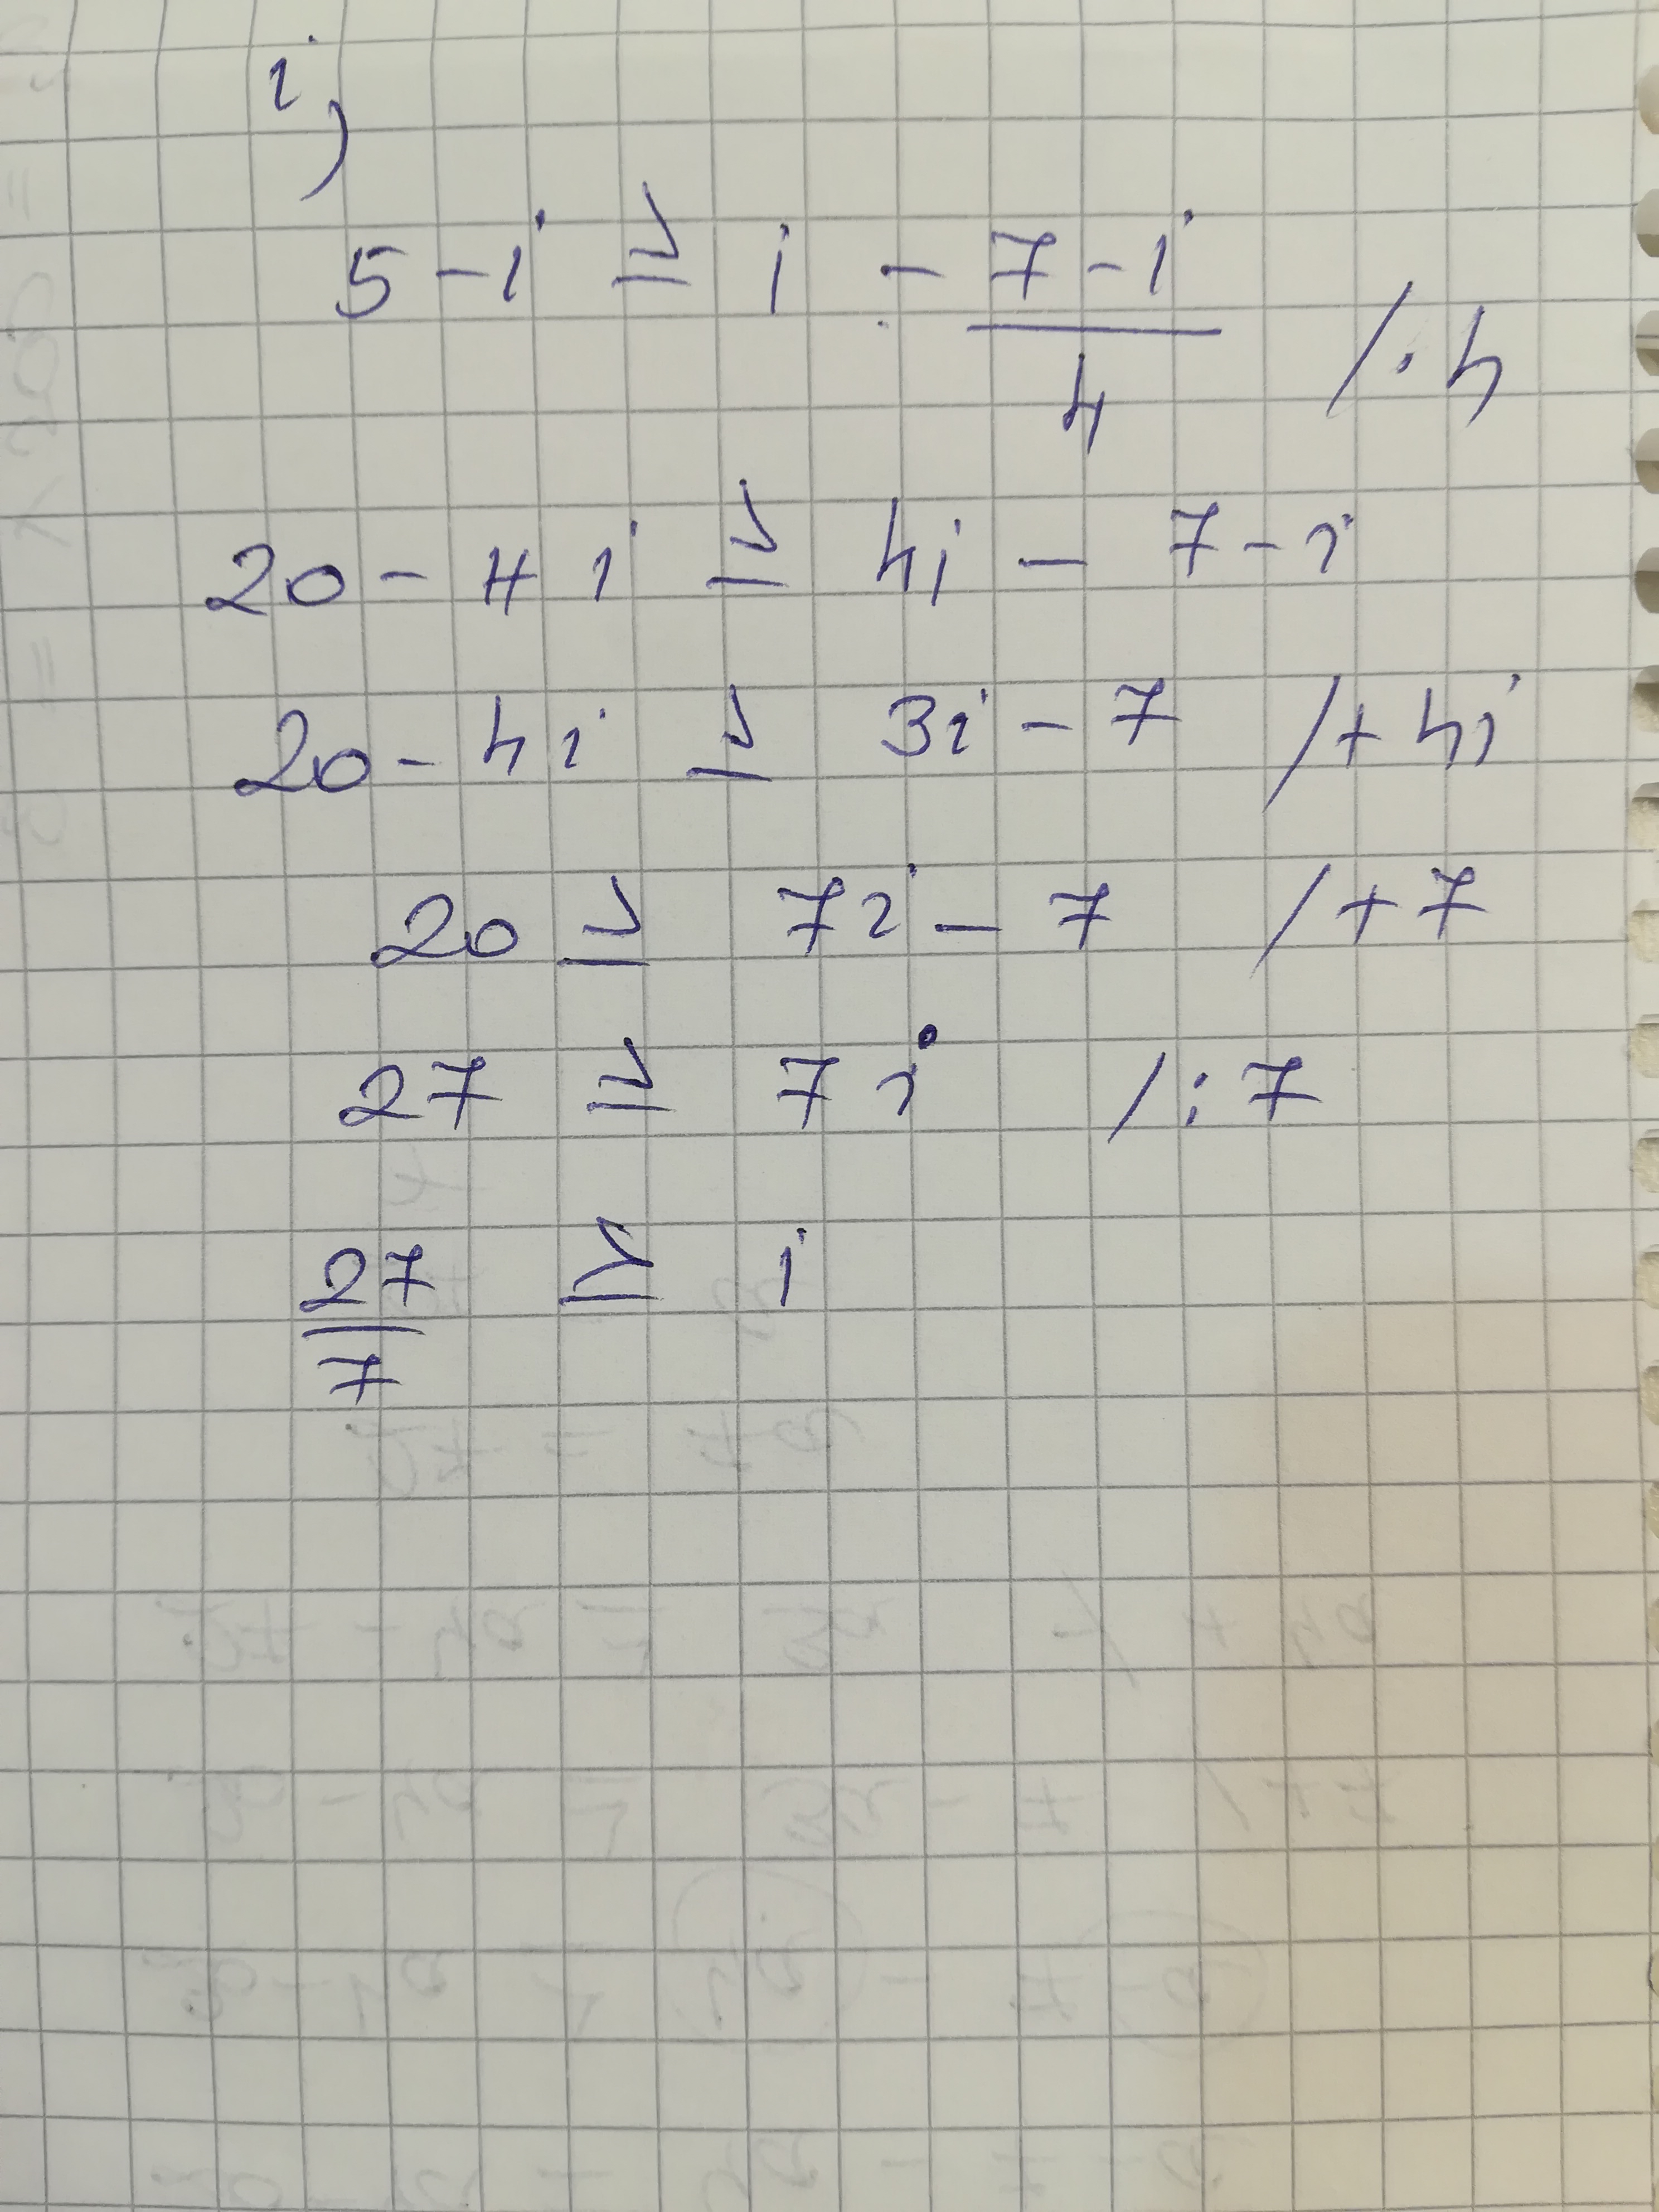 i)
5 - i ≥ i - \frac{7 - i}{4} / · 4
20 - 4i ≥ 4i - 7 - i
20 - 4i ≥ 3i - 7 / + 4i
20 ≥ 7i - 7 / + 7
27 ≥ 7i / : 7
\frac{27}{7} ≥ i